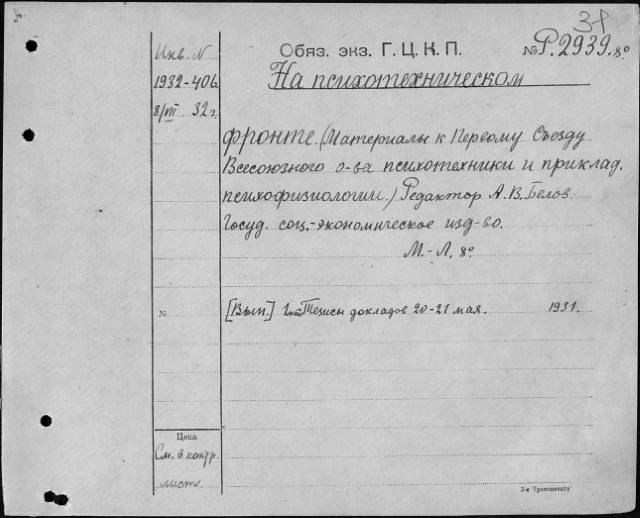 31
Инв. N
Обяз. экз. Г. Ц. К. П.
№ Р.2939. 8°
1932-406
На психотехническом
8/VII 32 г.
фронте. (Материалы к Первому Съезду
Всесоюзного о-ва психотехники и приклад.
психофизиологии.) Редактор А. В. Белов.
Госуд. соц.-экономическое изд-во.
М. - Л. 8°
№
[Вып.] Тезисы докладов 20-21 мая. 1931.
Цена
См. в контр.
листе.